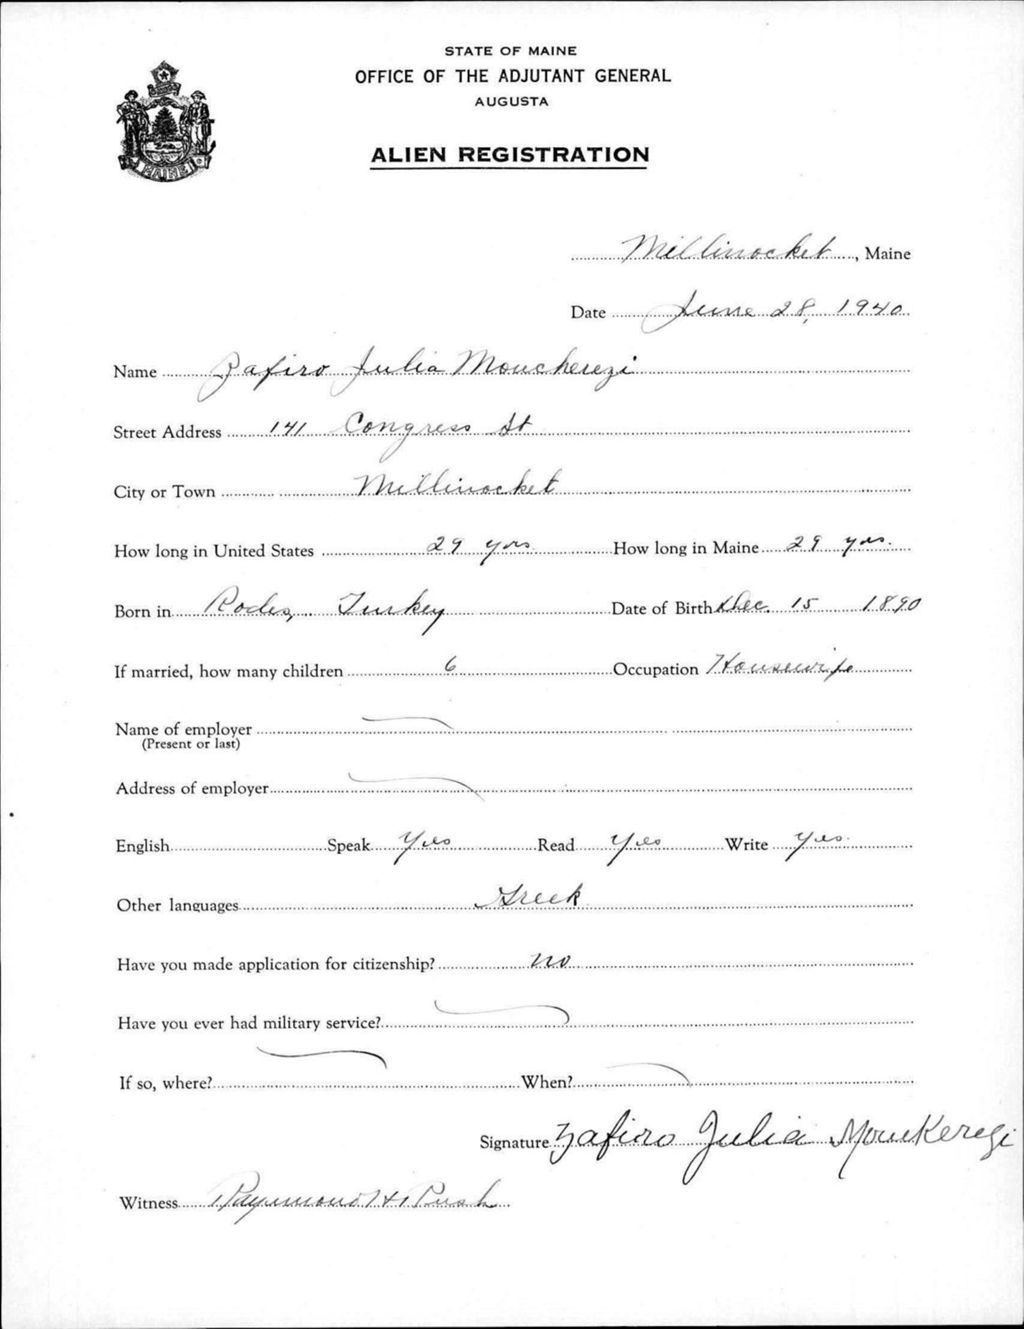 STATE OF MAINE
OFFICE OF THE ADJUTANT GENERAL
AUGUSTA
ALIEN REGISTRATION
MAINE
Millinocket, Maine
Date June 28, 1940
Name Zafiro Julia Moucherezi
Street Address 141 Congress St
City or Town Millinocket
How long in United States 29 yrs. How long in Maine 29 yrs.
Born in Rodes, Turkey Date of Birth Dec. 15 1890
If married, how many children 6 Occupation Housewife
Name of employer
(Present or last)
Address of employer
English Speak Yes Read Yes Write Yes
Other languages Greek
Have you made application for citizenship? no
Have you ever had military service?
If so, where? When?
Signature Zafiro Julia Moukeregi
Witness Raymond H. Rush